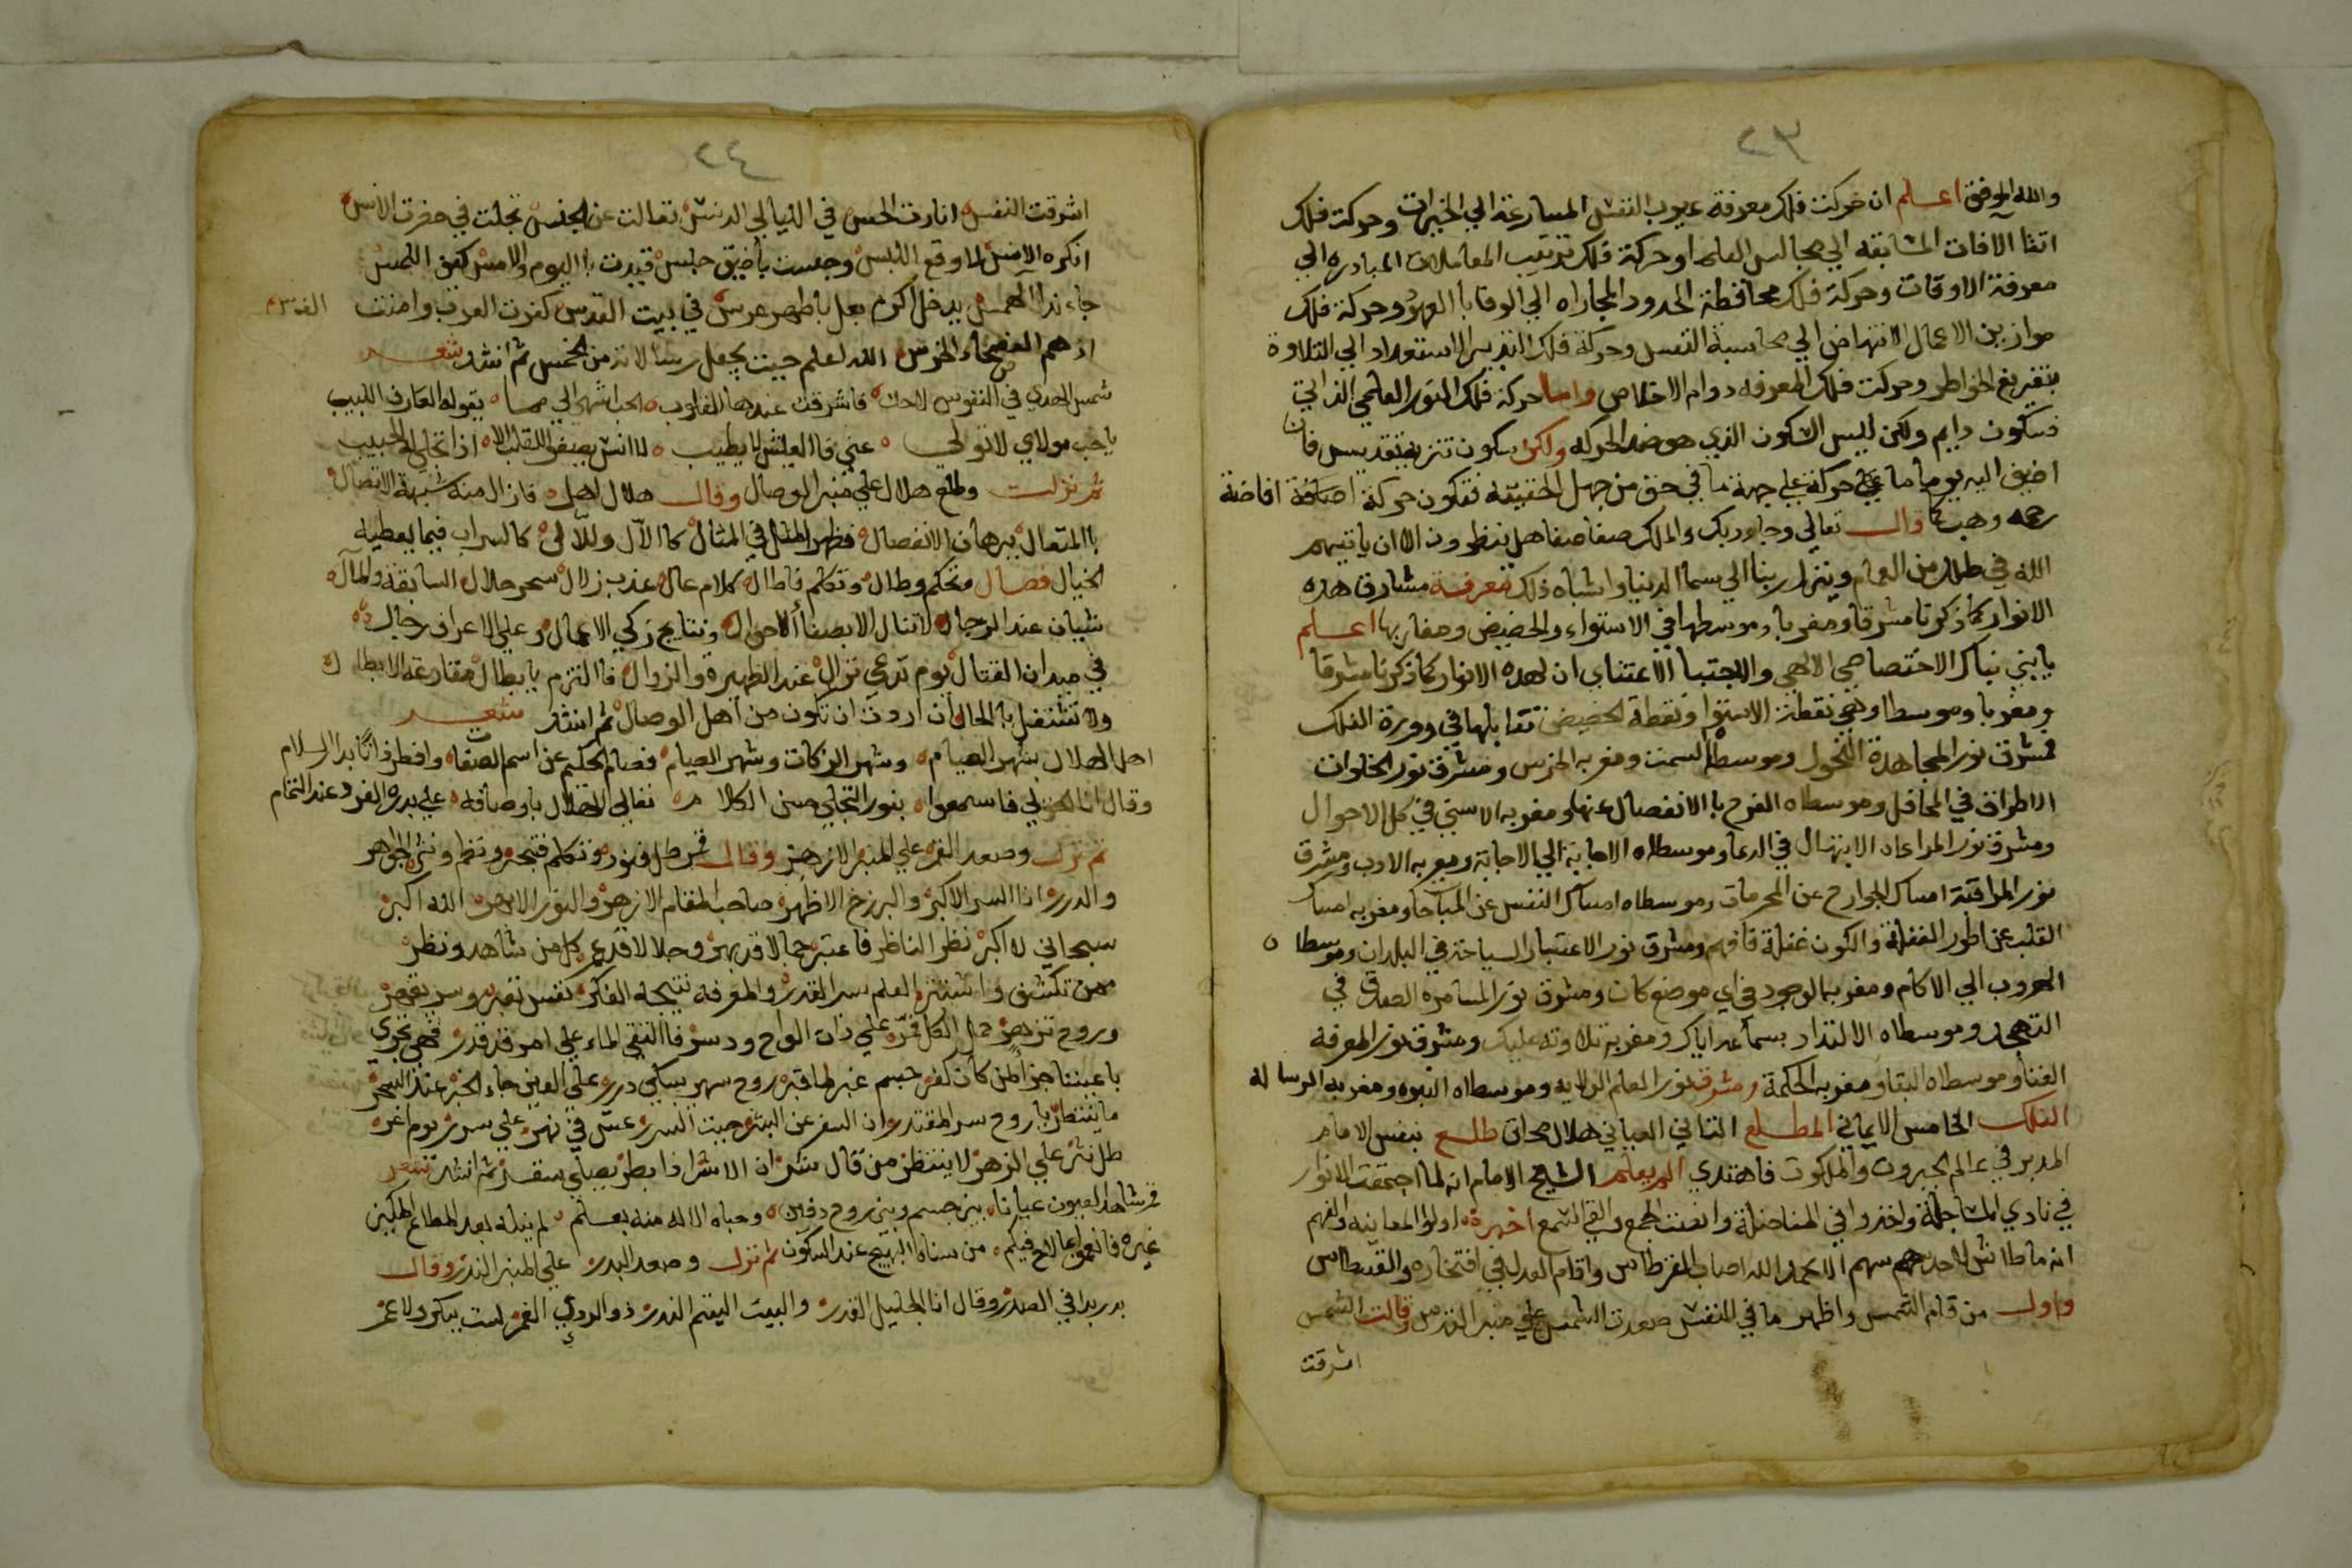 ٢٣
والله الموفق اعلم ان حركت فلك معرفة عيوب النفس المسارعة الي الخيرات وحركة فلك
اتقا الافات المسابقه الي مجالس العلما وحركة فلك ترتيب المعاملات المبادره الي
معرفة الاوقات وحركة فلك محافظة الحدود المجاراه الي الوفا با العهود وحركة فلك
موازين الاعمال الانتهاض الي محاسبة النفس وحركة فلك التدبر الاستعداد الي التلاوة
بتفريغ الخواطر وحركت فلك المعرفه دوام الاخلاص واما حركة فلك النور العلمي الذاتي
فسكون دايم ولكن ليس السكون الذي هو ضد الحركه ولكن سكون تنزيه تقديس فان
اضيف اليه يوما ما حركة علي جهة ما في حق من جهل الحقيقه فتكون حركة اضافة افاضة
رحمه وهيبة قال تعالي وجا ربك والملك صفا صفا هل ينظرون الا ان ياتيهم
الله في ظلل من الغمام وينزل ربنا الي سما الدنيا واشباه ذلك معرفة مشارق هذه
الانوار كما ذكرنا مشرقا ومغربا وموسطها في الاستواء والحضيض ومغاربها اعلم
يا بني نباك الاختصاصي الالهي والاجتبا الاعتناي ان لهذه الانوار كما ذكرنا مشرقا
ومغربا وموسطا وهي نقطة الاستوا ونقطة الحضيض تقابلها في دورة الفلك
فمشرق نور المجاهدة النحول وموسطه السمت ومغربه الخرس ومشرق نور الخلوات
الاطراق في المحافل وموسطاه الفرح با الانفصال عنها ومغربه الانس في كل الاحوال
ومشرق نور المراعاه الابتهال في الدعا وموسطاه الاجابة الي الاجابة ومغربه الادب ومشرق
نور المراقبة امساك الجوارح عن المحرمات وموسطاه امساك النفس عن المباحا ومغربه امساك
القلب عن اطور الغفلة والكون غفلة فافهم ومشرق نور الاعتبار السياحة في البلدان وموسطاه
الهروب الي الاكام ومغربه الوجود في اي موضع كان ومشرق نور المسامره الصدق في
التهجد وموسطاه الالتذاذ بسماعه اياك ومغربه تلاوته عليك ومشرق نور المعرفه
الفنا وموسطاه البقا ومغربه الحكمة ومشرق نور العلم الولايه وموسطاه النبوه ومغربه الرساله
الفلك الخامس الايماني المطلع الثاني العياني هلال محاق طلع بنفس الامام
المدبر في عالم الجبروت والملكوت فاهتدي الم يعلم الشيخ الامام انه لما اجتمعت الانوار
في نادي المساجلة واخذوا في المناضلة وانصت الجمع والقي السمع اخبره اولوا المعاينه والفهم
انه ما طاش لاحدهم سهم الا بحمد الله اصاب القرطاس واقام العدل في افتخاره والقسطاس
واول من قام الشمس واظهر ما في النفس صعدت الشمس علي منبر القدس وقالت الشمس
اشرقت
٢٤
اشرقت النفس انارت الحس في الليالي الدمس تعالت عن الجنس تجلت في حضرت الانس
انكره الامس لما وقع اللبس وجعلت باضيق حبس قيدت با اليوم والامس كفن اللمس
جاء ندا الهمس يدخل اكرم بعل باطهر عرس في بيت القدس كفرت العرب وامنت الفرس
اذ هم الفصحاء الخرس الله اعلم حيث يجعل رسالاته من الخمس ثم انشد شعر
شمس الهدي في النفوس لاحت فاشرقت عندها القلوب الحب اشهي الي مما يقوله العارف اللبيب
يا حب مولاي لا تولي عني فا العيش لا يطيب لا انس يصفوا للقلب الا اذا تجلي له الحبيب
ثم نزلت وطلع هلال علي منبر الوصال وقال هلال اهل فازال منه شبهة الاتصال
با المتعال ببرهان الانفصال فظهر المثل في المثال كا الآل وللآلي كالسراب فيما يعطيه
الخيال فصال وتحكم وطال وتكلم فاطال كلام عال عذب زلال سحر حلال السابقة والمآل
سيان عند الرجال لا تنال الا بصفأ الاحوال ونتايج زكي الاعمال وعلي الاعراف رجال
في ميدان القتال يوم تدعي نزال عند الظهيرة والزوال فا التزم يا بطال مقارعة الابطال
ولا تشتغل با المحال ان اردت ان تكون من اهل الوصال ثم انشد شعر
اهل الهلال بشهر الصيام وشهر الزكات وشهر الصيام فصام الحكيم عن اسم الصفات وافطر ذاتا بدار السلام
وقال انا الحق لي فاسمعوا بنور التجلي صنن الكلام تعالي الهلال باوصافه علي بدره الفرد عند التمام
ثم نزل وصعد القمر علي المنبر الازهر وقال قمر طل فنور وتكلم فتبحر ونظم ونثر الجواهر
والدرر انا السر الاكبر والبرزخ الاظهر صاحب المقام الازهر والنور الابهر الله اكبر
سبحاني لا اكبر نظر الناظر فاعتبر جمالا قد بهر وجلالا قد عم كل من شاهد ونظر
ممن تكشف واستتر العلم سر القدر والمعرفه نتيجة الفكر نفس تعبر وسر يقهر
وروح تزهر حمل الكل علي ذات الواح ودسر فا التقي الماء علي امر قد قدر فهي تجري
باعيننا جزا لمن كان كفر جسم غبر لما قبر روح سهر يسلي درر علي العين جاء الخبر عند السحر
ما ينتظر يا روح سر المقتدر ان السفر عن البشر جنت السرر عش في نهر علي سرر يوم اغر
طل نثر علي الزهر لا ينتظر من قال شر ان الاشر اذا بطر يصلي سقر ثم انشد شعر
قمر شاهد العيون عيانا بين جسم وبين روح دفين وحباه الاله منه بعلم لم ينله بعد المطاع المكين
غيره فانعموا بما لاح فيكم من سناه البهيج عند السكون ثم نزل وصعد البدر علي المنبر الندر وقال
بدر بدا في الصدر وقال انا الجليل القدر والبيت اليتم الندر ذو الردي الغمر لست ببكر ولا غمر